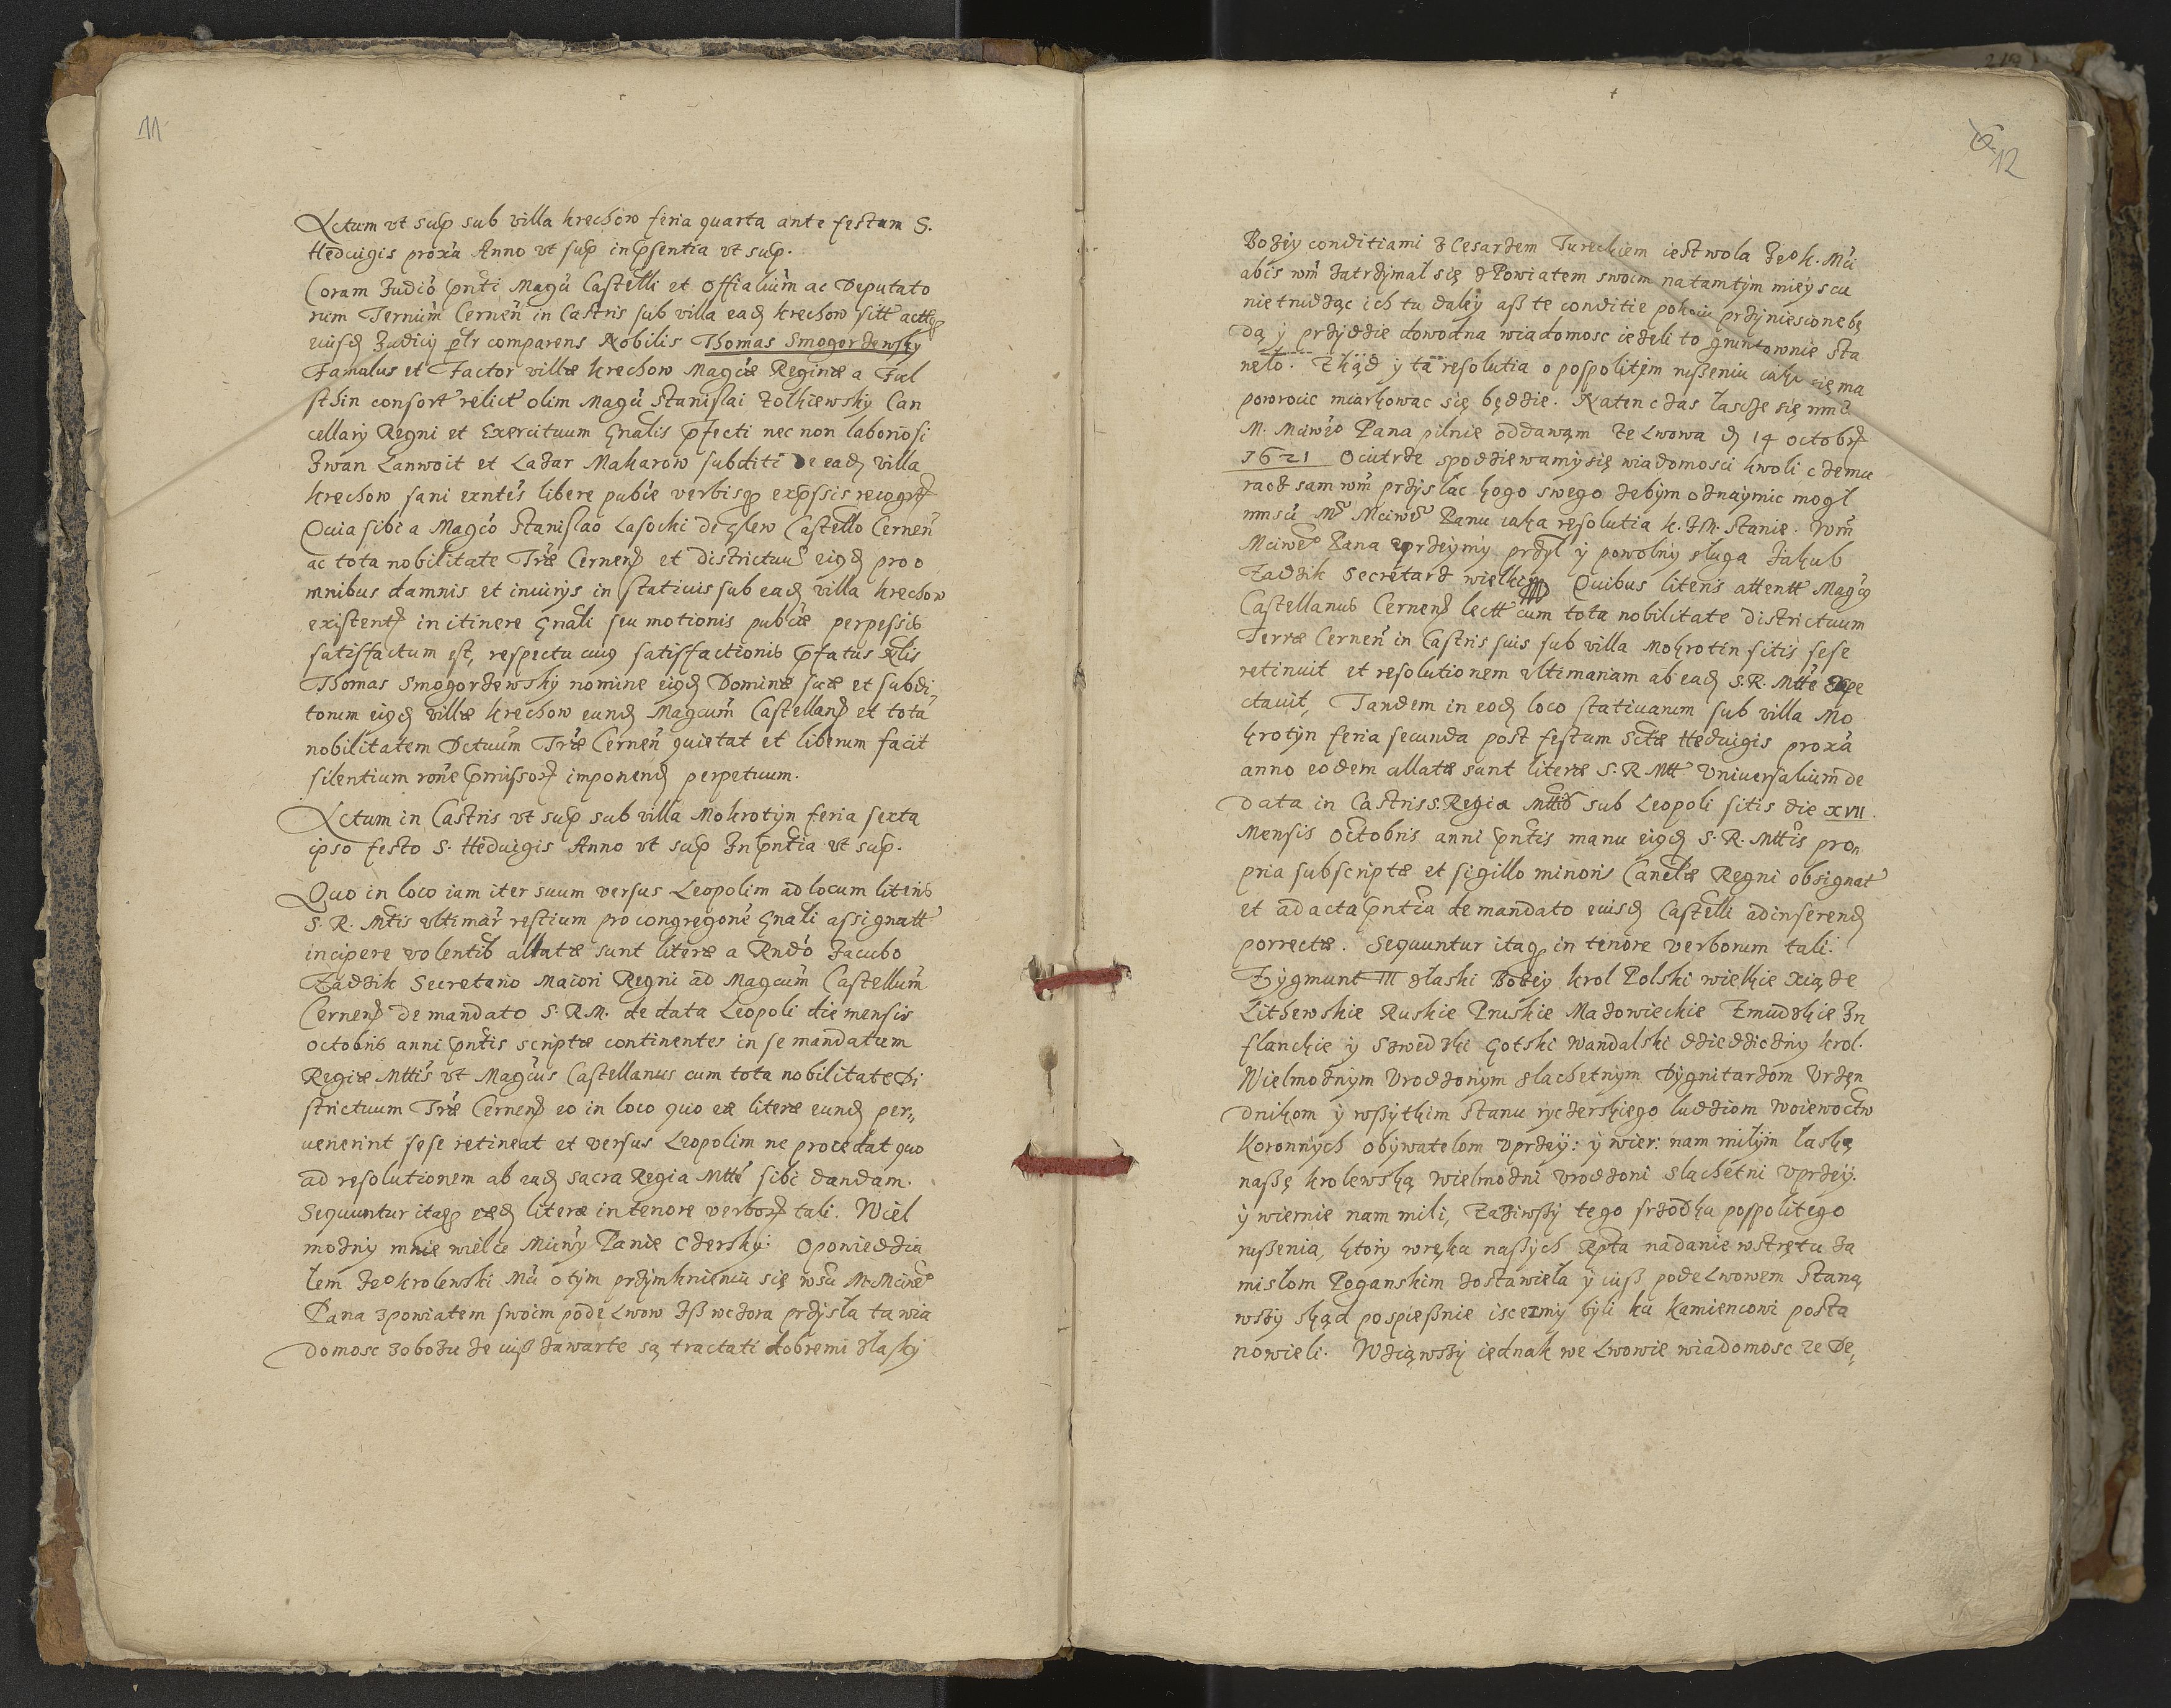 11
Actum vt sup sub villa Krechow feria quarta ante festum S.
Heduigis proxa Anno vt sup in psentia vt sup.
Coram Judio pnti Magci Castelli et Offialium ac Deputato
rum Terrum Cernen in Castris sub villa ead Krechow sitt actq
eiusd Judicij plr comparens Nobilis Thomas Smogorzewsky
Famulus et Factor villæ Krechow Magcæ Reginæ a Ful
sthin consort relict olim Magci Stanislai Zolkiewsky Can
cellarij Regni et Exercituum Gnalis pfecti nec non laboriosi
Iwan Lanwoit et Lazar Makarow subditi de ead villa
Krechow sani exntes libere pubce verbisq expssis recogrt
Quia sibi a Magco Stanislao Lasochi de Glew Castello Cernen
ac tota nobilitate Træ Cernen et districtuu eiqd pro o
mnibus damnis et iniurijs in statiuis sub ead villa Krechow
existent in itinere Gnali seu motionis pubcæ perpessis
satisfactum est, respectu cuiq satisfactionis pfatus Nlis
Thomas Smogorzewsky nomine eiqd Dominæ suæ et subdi,
torum eiqd villæ Krechow eund Magcum Castellan et tota
nobilitatem Dctuum Træ Cernen quietat et liberum facit
silentium rone pmissor imponend perpetuum.
Actum in Castris vt sup sub villa Mokrotyn feria sexta
ipso festo S. Heduigis Anno vt sup In pntia vt sup.
Quo in loco iam iter suum versus Leopolim ad locum literis
S. R. Mtis vltimar restium pro congregone Gnali assignatt
incipere volentib allatæ sunt literæ a Rndo Jacobo
Zadzik Secretario Maiori Regni ad Magcum Castellum
Cernen de mandato S. R. M. de data Leopoli die mensis
octobris anni pntis scriptæ continentes in se mandatum
Regiæ Mttis vt Magcus Castellanus cum tota nobilitate Di
strictuum Træ Cernen eo in loco quo eæ literæ eund per,,
uenerint sese retineat et versus Leopolim ne procedat quo
ad resolutionem ab ead sacra Regia Mtte sibi dandam.
Sequuntur itaq eæd literæ in tenore verbor tali. Wiel
mozny mnie wielce Mciwy Panie Czersky: Opowiedzia
lem Jeo Krolewski Mci o tym przymknieniu się wsci M. Mciweo
Pana z powiatem swoim pode Lwow Iß wczora przysla ta wia
domosc z obozu ze iuß zawarte są tractati dobremi z laski
12
Bozey conditiami z Cesarzem Tureckiem iest wola Jeo K. Mci
abis wm zatrzymal się z Powiatem swoim na tamtym mieyscu
nie trudząc ich tu daley aß te conditie pokoiu przyniesione bę
dą y przydzie dowodna wiadomosc iezeli to gruntownie sta
nelo. Zkąd y ta resolutia o pospolitym rußeniu iako się ma
powrocic miarkowac się będzie. Natenczas lascze się wmci
M. Mciweo Pana pilnie oddawam Ze Lwowa d 14 octobr
1621 O iutrze spodziewamy się wiadomosci kwoli czemu
racz sam wm przyslac kogo swego zebym oznaymic mogl
wmsci Me Mciwe Panu iaka resolutia K. JM. stanie. Wm
Mciweo Pana vprzeymy przyl y powolny sluga Jakub
Zadzik Secretarz wielki Quibus literis attentt Magcq
Castellanus Cernen lectt cum tota nobilitate districtuum
Terræ Cernen in Castris suis sub villa Mokrotin sitis sese
retinuit et resolutionem vltimariam ab ead S. R. Mtte expe
ctauit, Tandem in eod loco statiuarum sub villa Mo
krotyn feria secunda post festum Sctæ Heduigis proxa
anno eodem allatæ sunt literæ S. R Mtt Vniuersalium de
data in Castris S. Regia Mttis sub Leopoli sitis die XVII.
Mensis Octobris anni pntis manu eiqd S. R. Mttis pro,,
pria subscriptæ et sigillo minoris Canclæ Regni obsignat
et ad acta pntia de mandato eiusd Castelli ad inserend
porrectæ. Sequuntur itaq in tenore verborum tali.
Zygmunt III z laski Bozey Krol Polski wielkie xiąze
Lithewskie Ruskie Pruskie Mazowieckie Zmudzkie In
flanckie y Szwedzki Gotski Wandalski dziedziczny Krol.
Wielmoznym Vrodzonym slachetnym Dygnitarzom Vrzęn
dnikom y wßytkim stanu rycerskiego ludziom Woiewoctw
Koronnych obywatelom vprzey: y wier: nam milym laskę
naßę Krolewską Wielmozni vrodzoni slachetni vprzey.
y wiernie nam mili, Zaziwßy tego srzodka pospolitego
rußenia, ktory wręku naßych Rpta nadanie wstrętu za
mislom Poganskim zostawiela y iuß pode Lwowem staną
wßy skąd pospießnie iscezmy byli ku Kamiencowi posta
nowieli. Wziąwßy iednak we Lwowie wiadomosc ze De,,